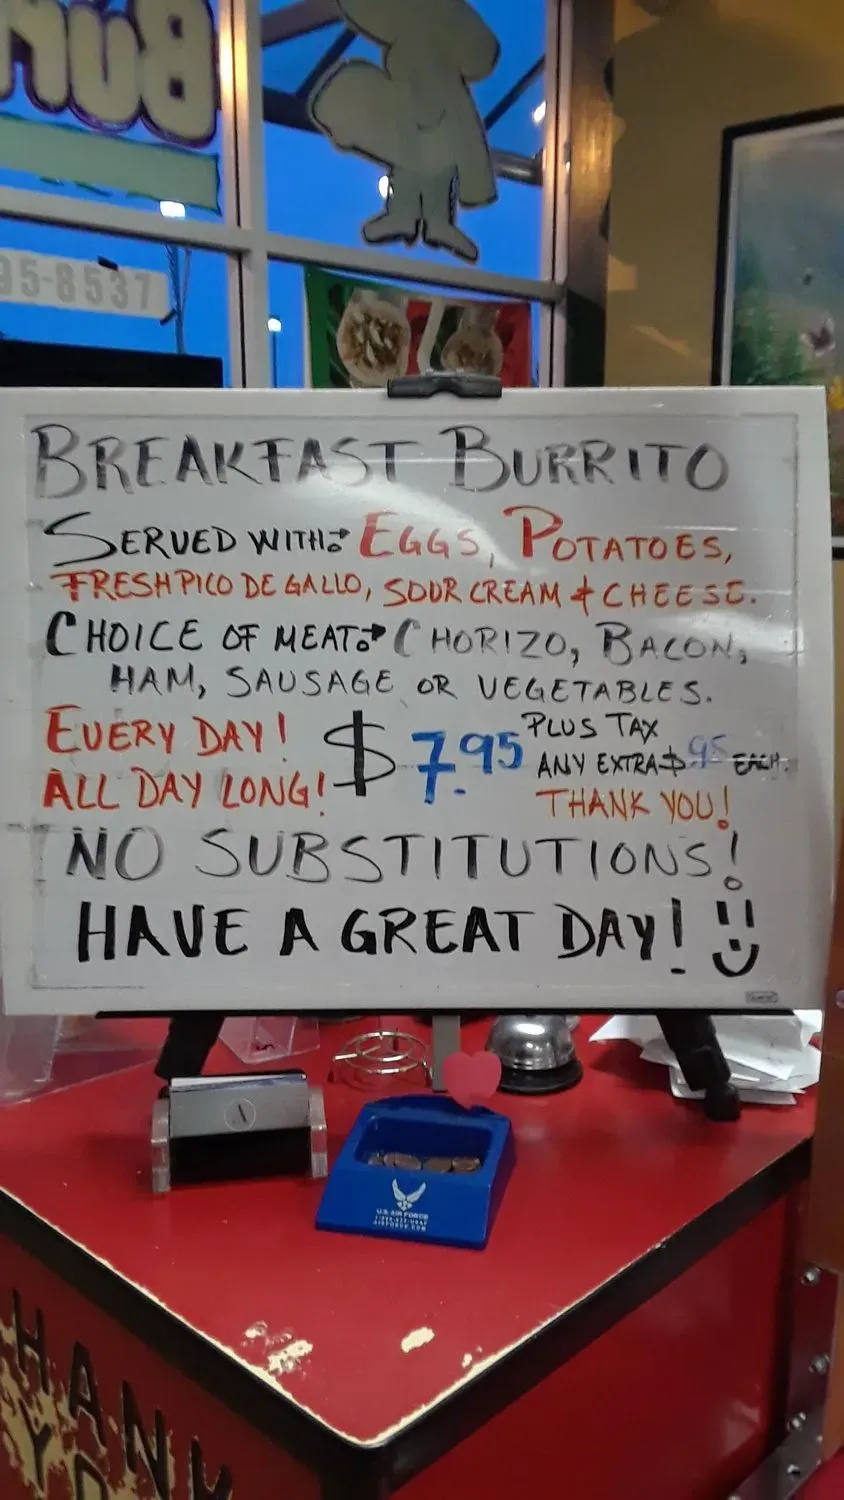 95-8537
BREAKFAST BURRITO
SERVED WITH: EGGS, POTATOES,
FRESH PICO DE GALLO, SOUR CREAM & CHEESE.
CHOICE OF MEAT: CHORIZO, BACON,
HAM, SAUSAGE OR VEGETABLES.
EVERY DAY!
ALL DAY LONG!
$7.95
PLUS TAX
ANY EXTRA $.95 EACH.
THANK YOU!
NO SUBSTITUTIONS!
HAVE A GREAT DAY!
U.S. AIR FORCE
AIRFORCE.COM
THANK
YO